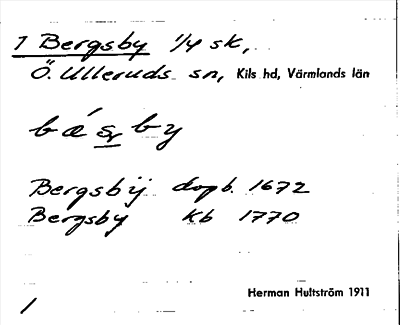 1 Bergsby 1/4 sk,
Ö. Ulleruds sn, Kils hd, Värmlands län
bá by
Bergsbÿ dopb. 1672
Bergsby Kb 1770
Herman Hultström 1911
/